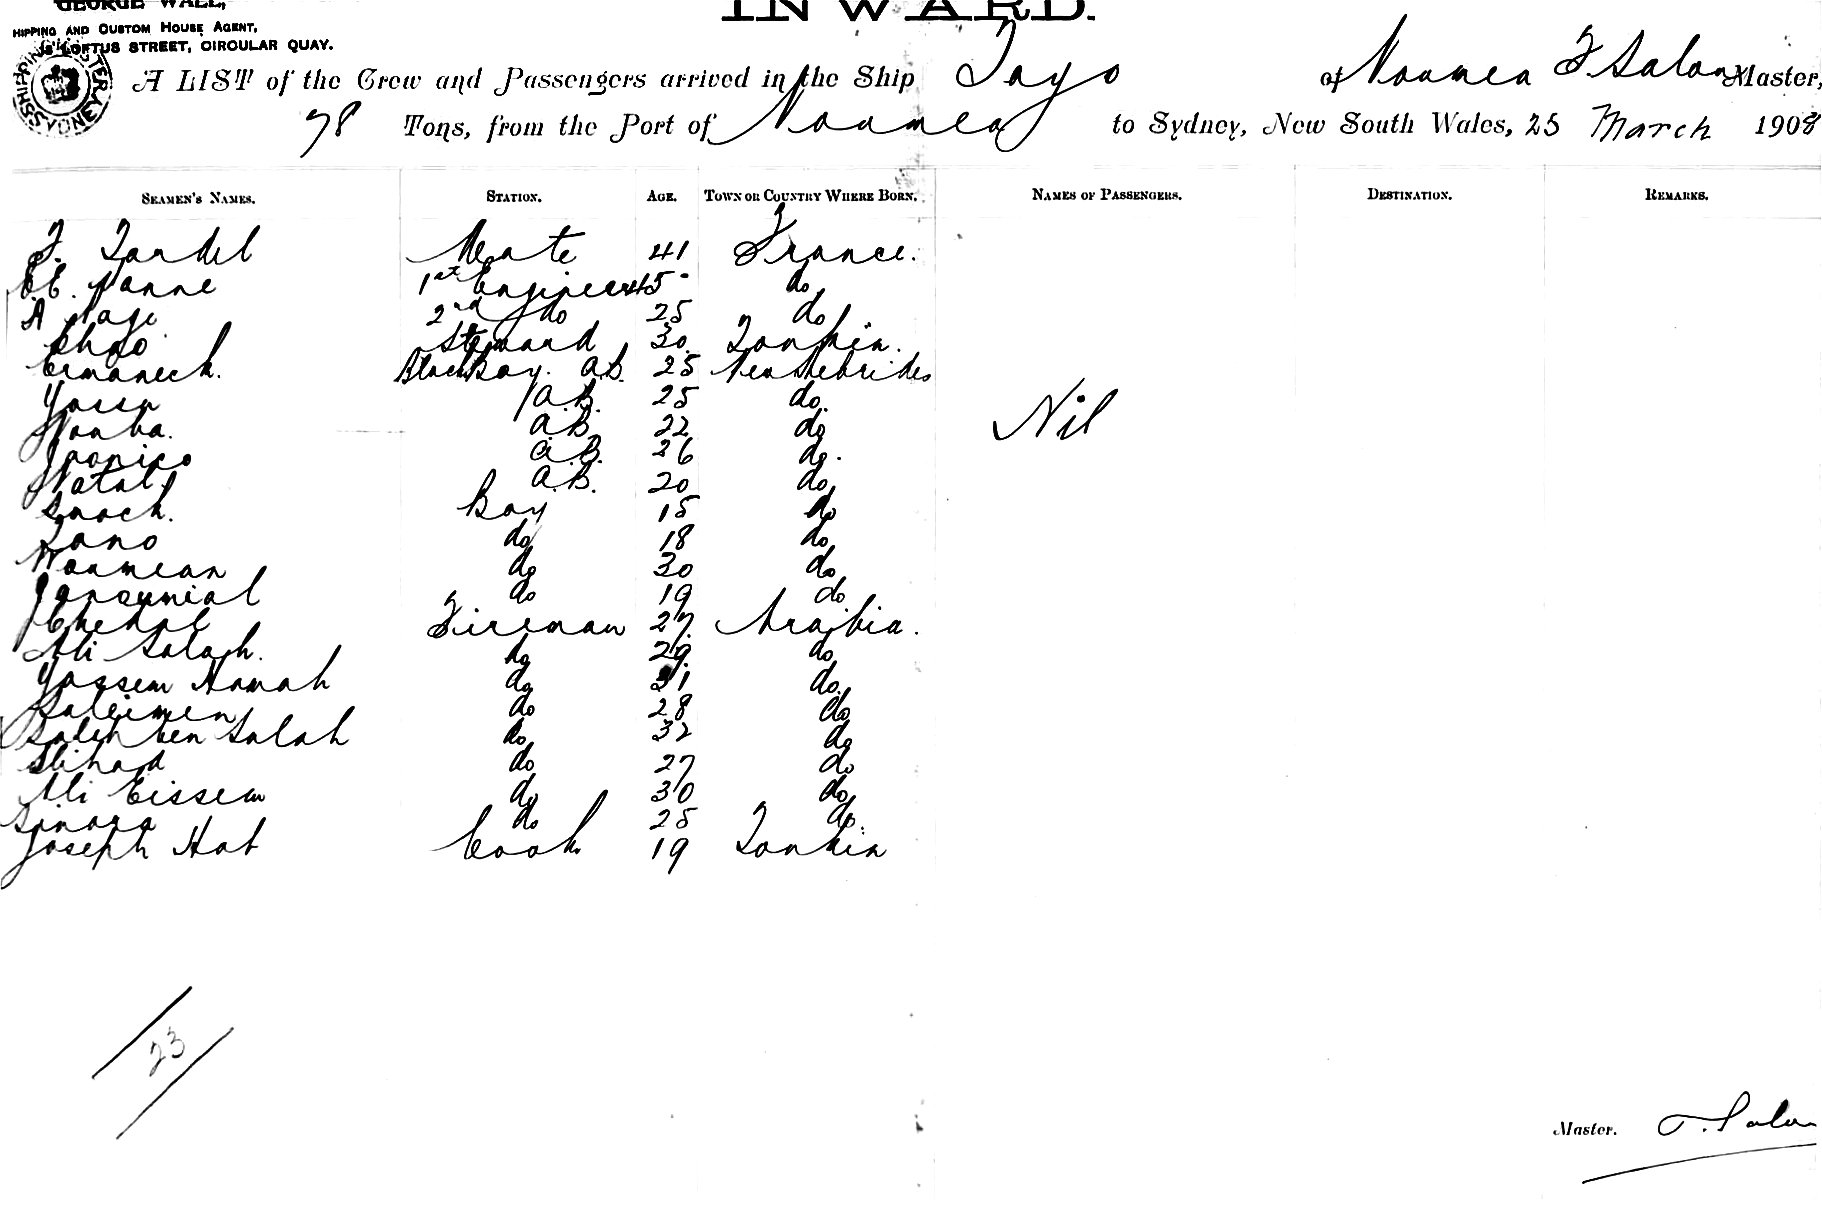 GEORGE WALL,
HIPPING AND CUSTOM HOUSE AGENT,
LOFTUS STREET, CIRCULAR QUAY.
INWARD.
A LIST of the Crew and Passengers arrived in the Ship Tayo of Noumea F. Salon Master,
78 Tons, from the Port of Noumea to Sydney, New South Wales, 25 March 1908
SEAMEN'S NAMES. STATION. AGE. TOWN OR COUNTRY WHERE BORN. NAMES OF PASSENGERS. DESTINATION. REMARKS.
F. Tardel Mate 41 France.
E. Nanne 1st Engineer 45 do
A 2nd do 25 do
Steward 30 Tonkin.
Ermaneck. Black Boy. A.B. 25 New Hebrides
A.B. 25 do.
Wamba. A.B. 22 do
A.B. 26 do.
Natal. A.B. 20 do
Enoch. Boy 15 do
Tano do 18 do
Noumean do 30 do
do 19 do
Fireman 27. Arabia.
Ali Salah. do 29. do
Yassem Hamah do 31 do.
Suleimen do 28 do
Saleh ben Salah do 32 do
do 27 do
Ali Eissem do 30 do
do 25 do.
Joseph Hat Cook 19 Tonkin
Nil
23
Master. F. Salon
SHIPPING MASTER SYDNEY